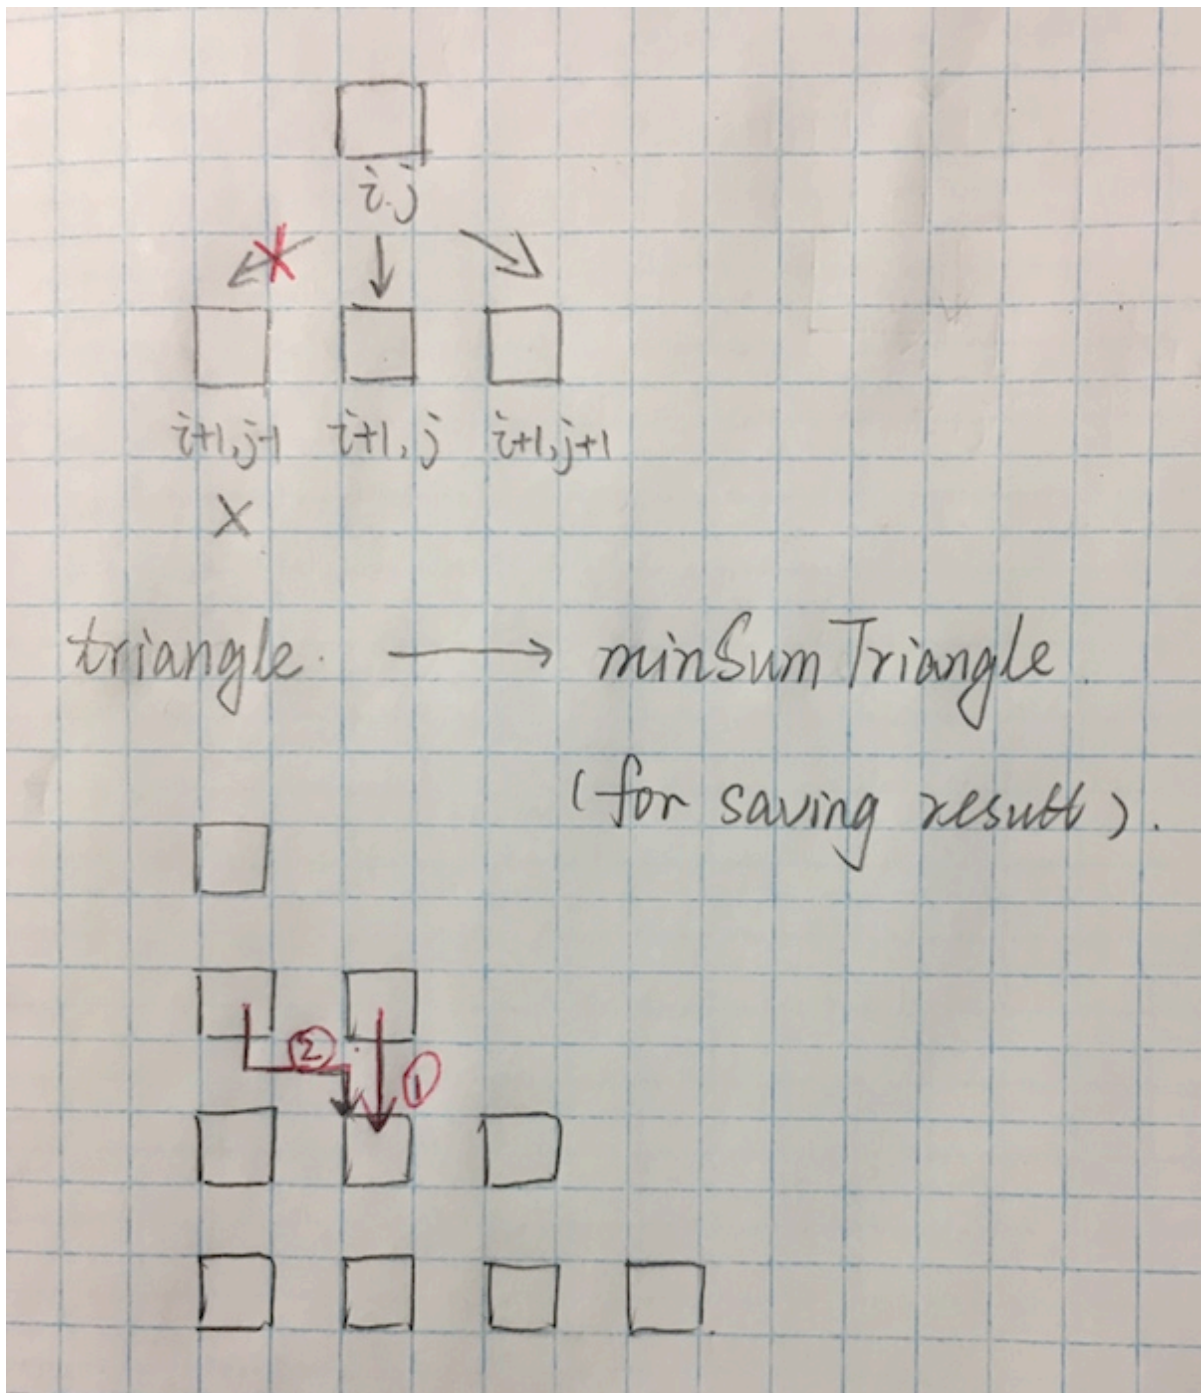 i.j
i+1,j-1 i+1,j i+1,j+1
X
triangle. → minSumTriangle.
(for saving result).
②
①